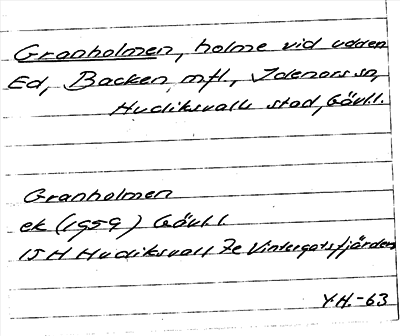 Granholmen, holme vid udden
Ed, Backen m fl., Idenors sn,
Hudiksvalls stad, Gävl.l.
Granholmen
ek (1959) Gävl l
15 H Hudiksvall 7e Vintergatsfjärden
YH-63